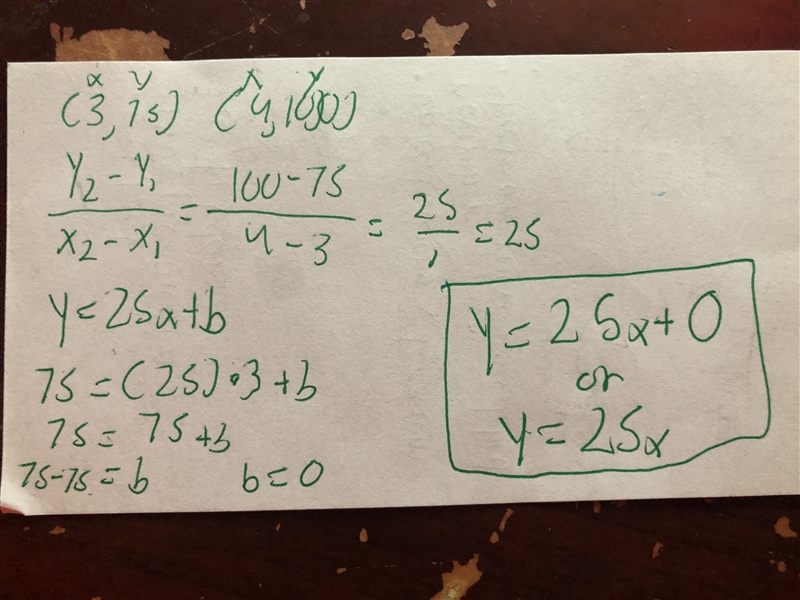 x y x y
(3, 75) (4, 100)
y₂ - y₁ / x₂ - x₁ = 100 - 75 / 4 - 3 = 25 / 1 = 25
y = 25x + b
75 = (25) • 3 + b
75 = 75 + b
75 - 75 = b b = 0
y = 25x + 0
or
y = 25x